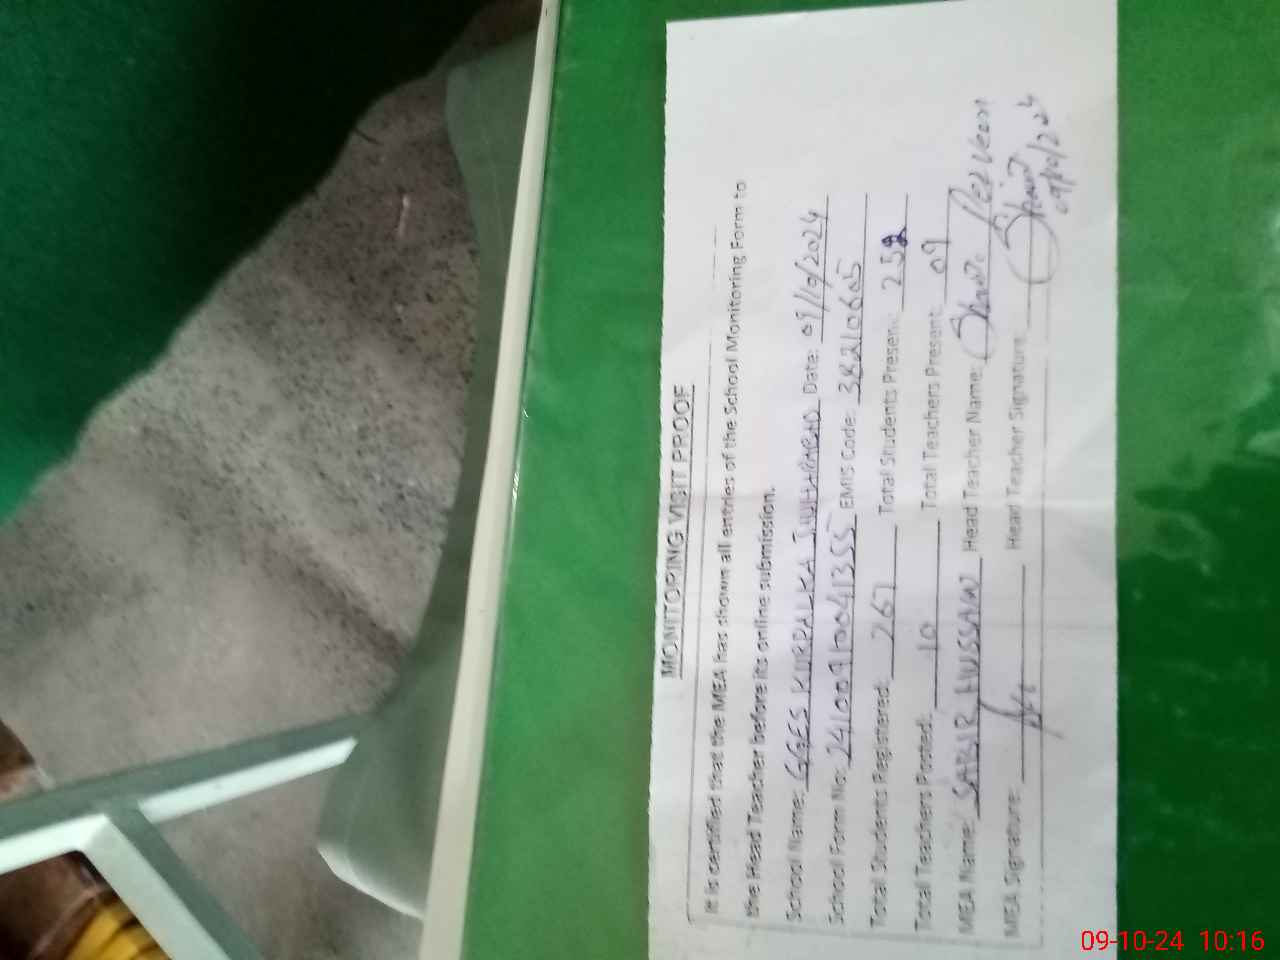 MONITORING VISIT PROOF
It is certified that the MEA has shown all entries of the School Monitoring Form to
the Head Teacher before its online submission.
School Name: GGES KURPALKA Date: 09/10/2024
School Form No: 24100910041355 EMIS Code: 38210605
Total Students Registered: 267 Total Students Present: 252
Total Teachers Posted: 10 Total Teachers Present: 09
MEA Name: SABIR HUSSAIN Head Teacher Name: Perveen
MEA Signature: Head Teacher Signature:
09/10/2024
09-10-24 10:16